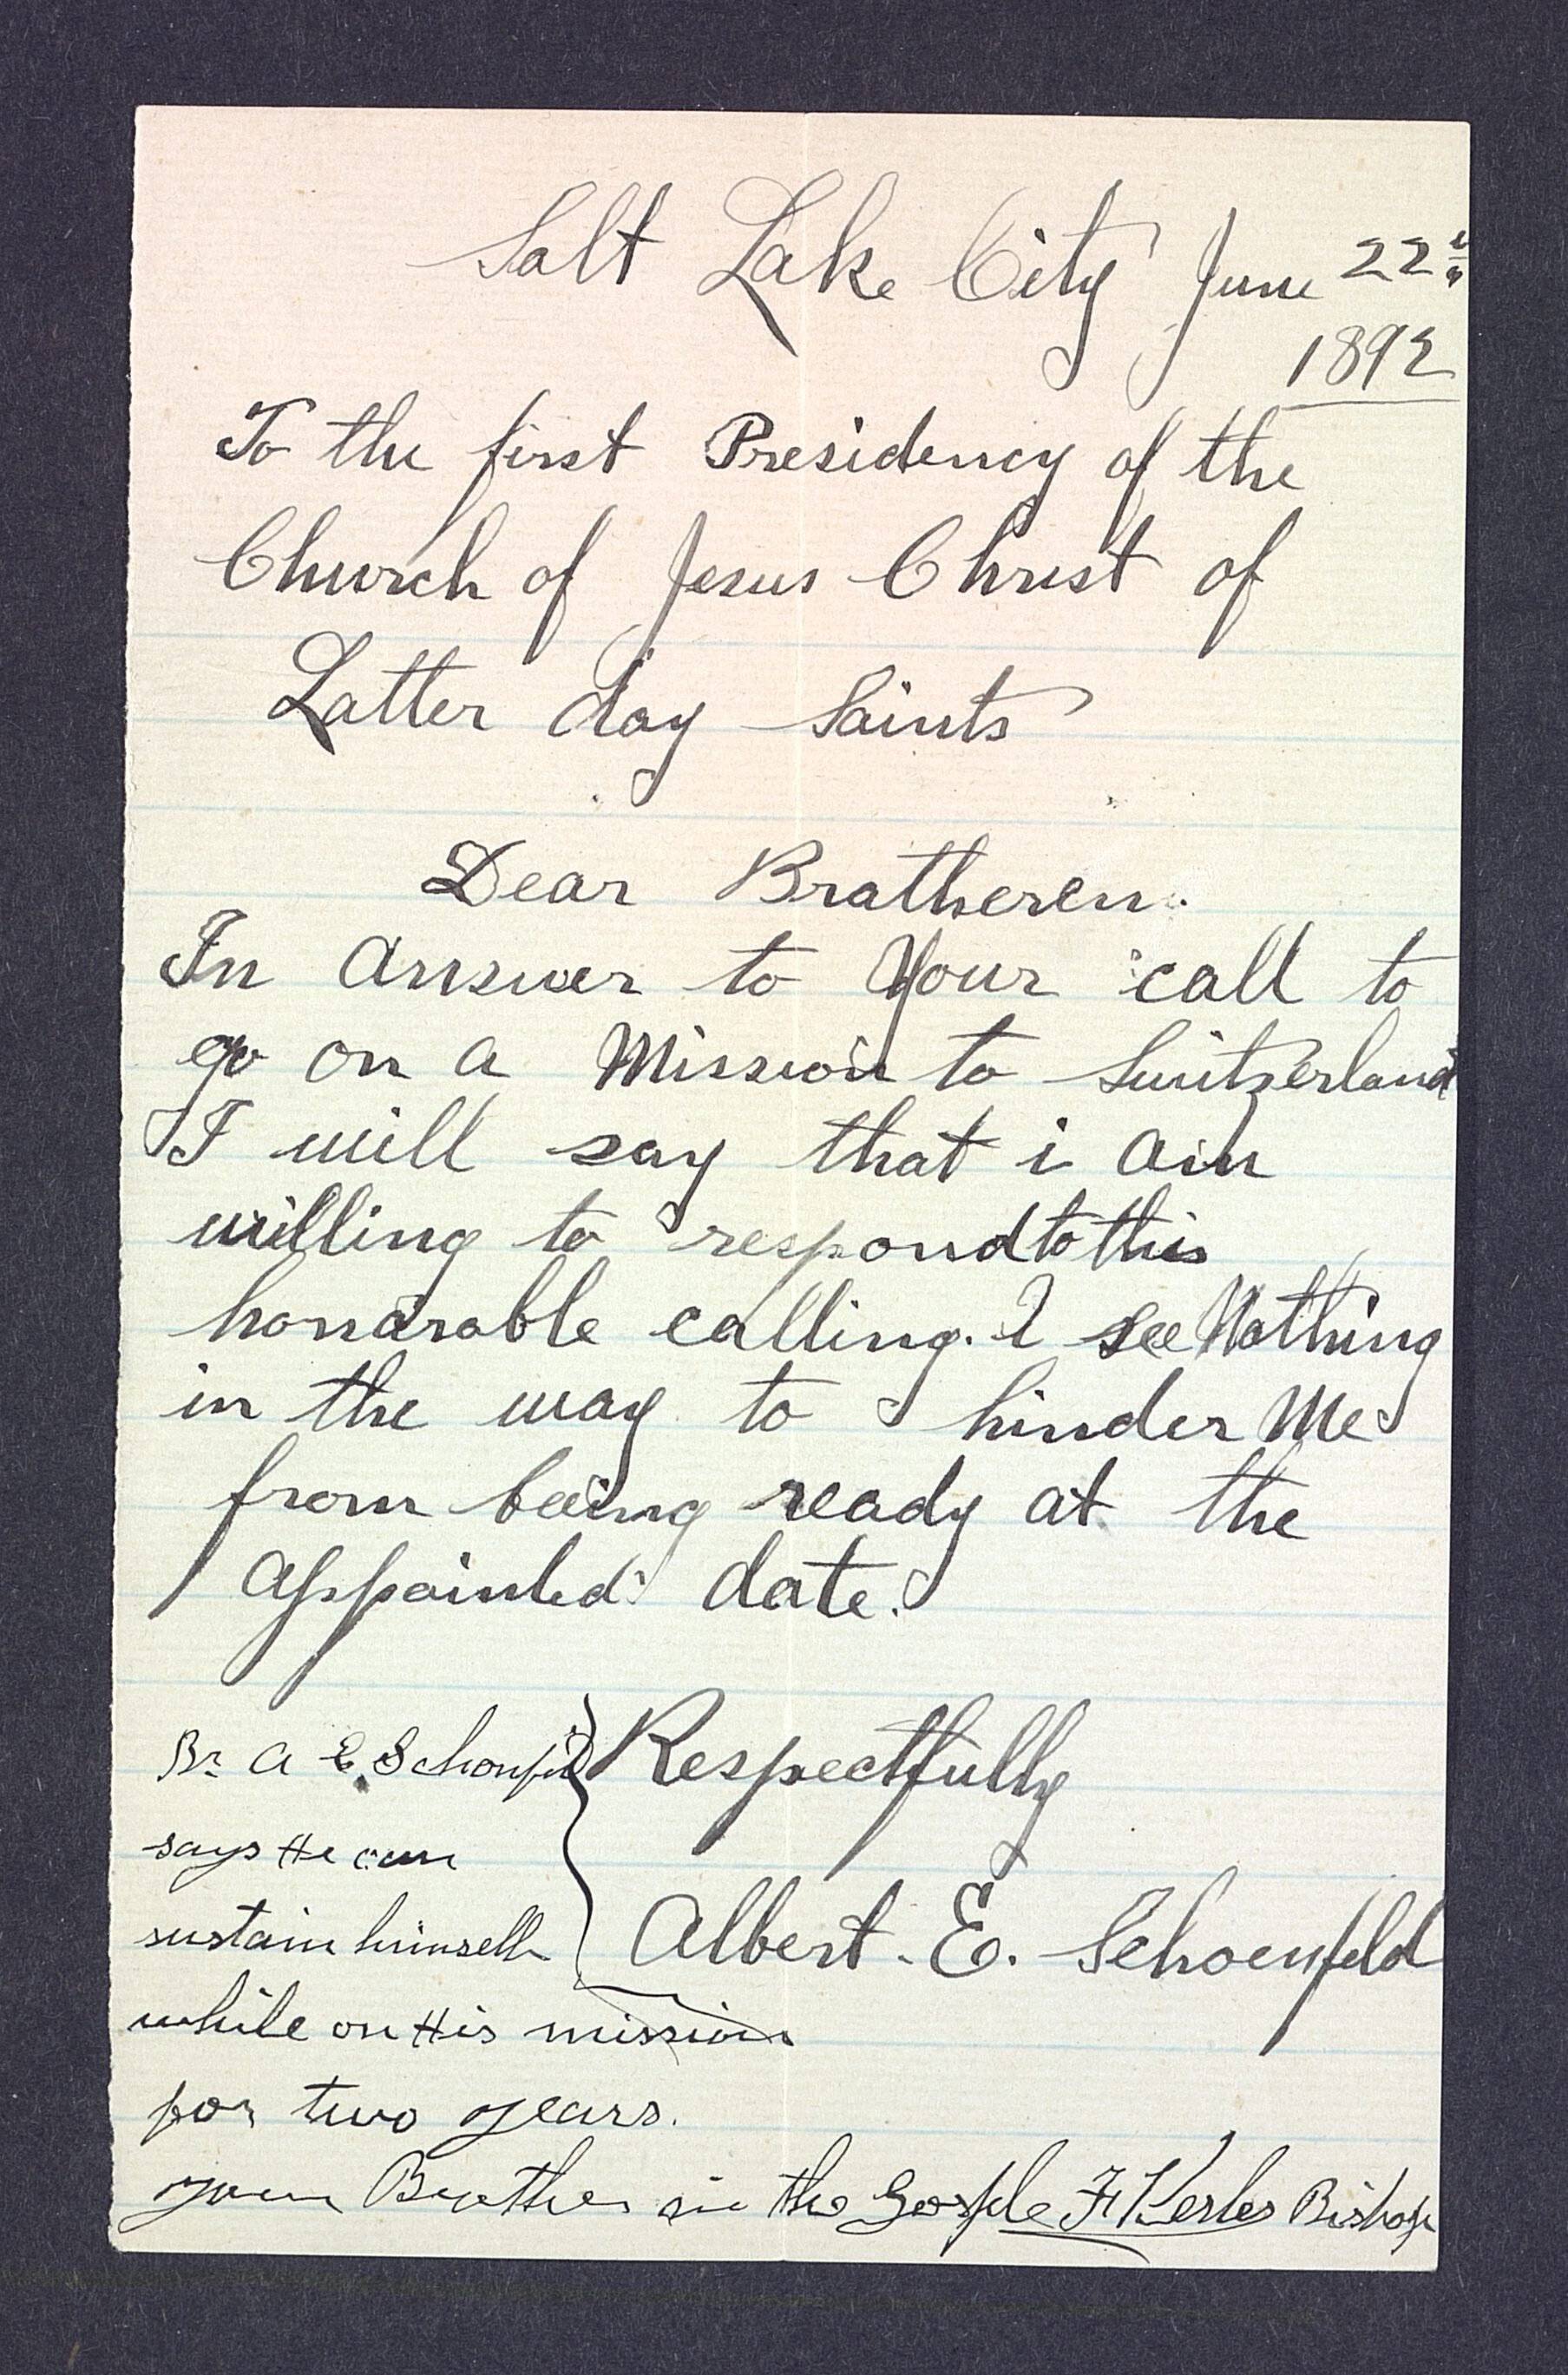 Salt Lake City June 22d
1892
To the first Presidency of the
Church of Jesus Christ of
Latter day Saints
Dear Bratheren.
In Answer to Your call to
go on a Mission to Switzerland
I will say that i am
willing to respond to this
honorable calling. I see Nothing
in the way to hinder Me
from being ready at the
Appointed date.
Respectfully
Albert. E. Schoenfeld
Br. A E Schonfeld
says He can
sustain himself
while on His mission
for two years.
your Brother in the Gosple F Kesler Bishop